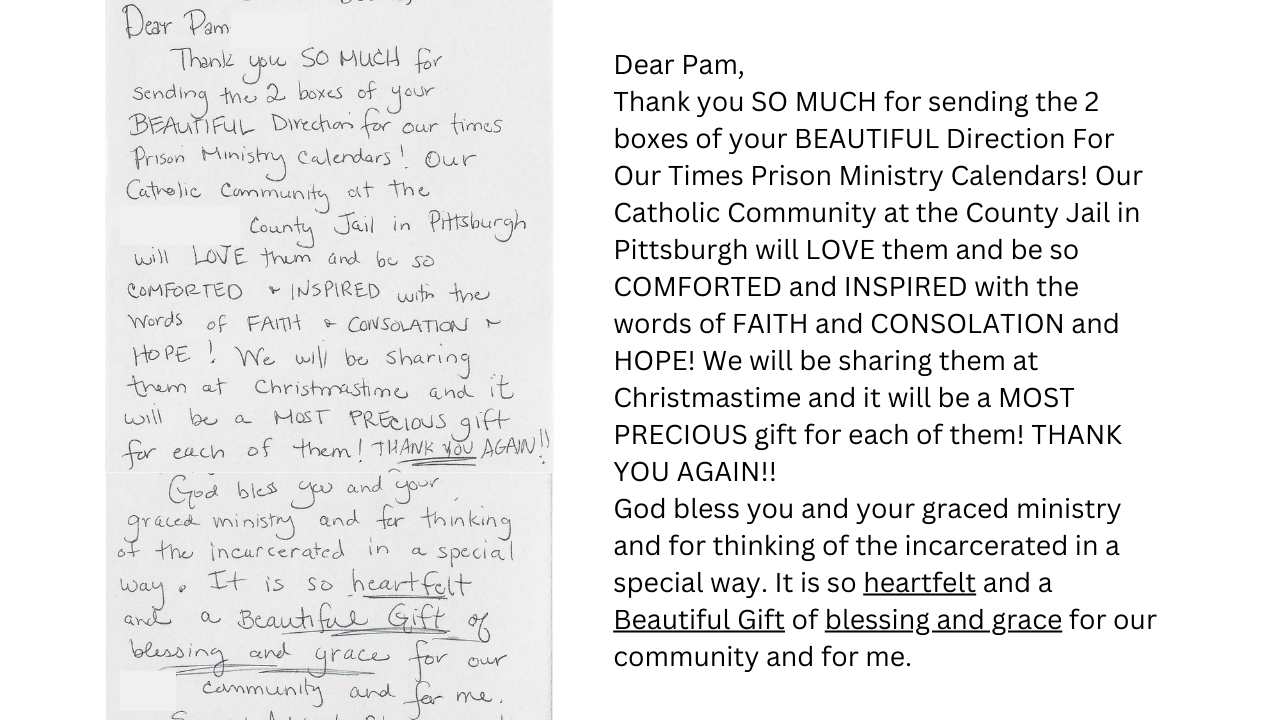 Dear Pam
Thank you SO MUCH for
sending the 2 boxes of your
BEAUTIFUL Direction for our times
Prison Ministry Calendars! Our
Catholic Community at the
County Jail in Pittsburgh
will LOVE them and be so
COMFORTED & INSPIRED with the
Words of FAITH & CONSOLATION &
HOPE! We will be sharing
them at Christmastime and it
will be a MOST PRECIOUS gift
for each of them! THANK YOU AGAIN!!
God bless you and your
graced ministry and for thinking
of the incarcerated in a special
way. It is so heartfelt
and a Beautiful Gift of
blessing and grace for our
community and for me.
Dear Pam,
Thank you SO MUCH for sending the 2
boxes of your BEAUTIFUL Direction For
Our Times Prison Ministry Calendars! Our
Catholic Community at the County Jail in
Pittsburgh will LOVE them and be so
COMFORTED and INSPIRED with the
words of FAITH and CONSOLATION and
HOPE! We will be sharing them at
Christmastime and it will be a MOST
PRECIOUS gift for each of them! THANK
YOU AGAIN!!
God bless you and your graced ministry
and for thinking of the incarcerated in a
special way. It is so heartfelt and a
Beautiful Gift of blessing and grace for our
community and for me.